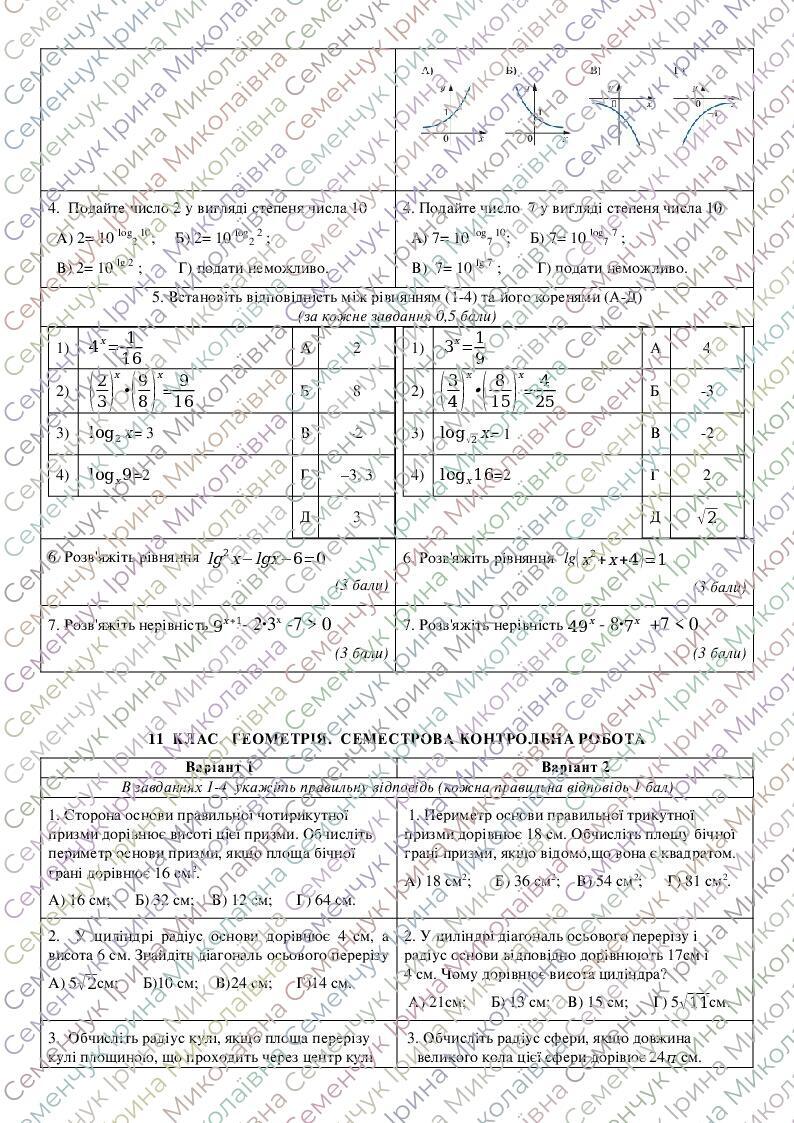 А) Б) В) Г)
4. Подайте число 2 у вигляді степеня числа 10
А) 2= 10^{log_2 10}; Б) 2= 10^{log_2 2};
В) 2= 10^{lg 2}; Г) подати неможливо.
4. Подайте число 7 у вигляді степеня числа 10
А) 7= 10^{log_7 10}; Б) 7= 10^{log_7 7};
В) 7= 10^{lg 7}; Г) подати неможливо.
5. Встановіть відповідність між рівнянням (1-4) та його коренями (А-Д)
(за кожне завдання 0,5 бали)
1) 4^x = 1/16 А 2
2) (2/3)^x • (9/8)^x = 9/16 Б 8
3) log_2 x = 3 В -2
4) log_x 9=2 Г –3; 3
Д 3
1) 3^x = 1/9 А 4
2) (3/4)^x • (8/15)^x = 4/25 Б -3
3) log_{√2} x = 1 В -2
4) log_x 16=2 Г 2
Д √2
6. Розв'яжіть рівняння lg² x − lgx − 6=0
(3 бали)
6. Розв'яжіть рівняння lg(x²+x+4)=1
(3 бали)
7. Розв'яжіть нерівність 9^{x+1} - 2•3^x -7 > 0
(3 бали)
7. Розв'яжіть нерівність 49^x - 8•7^x +7 < 0
(3 бали)
11 КЛАС. ГЕОМЕТРІЯ. СЕМЕСТРОВА КОНТРОЛЬНА РОБОТА
Варіант 1 Варіант 2
В завданнях 1-4 укажіть правильну відповідь (кожна правильна відповідь 1 бал)
1. Сторона основи правильної чотирикутної
призми дорівнює висоті цієї призми. Обчисліть
периметр основи призми, якщо площа бічної
грані дорівнює 16 см².
А) 16 см; Б) 32 см; В) 12 см; Г) 64 см.
1. Периметр основи правильної трикутної
призми дорівнює 18 см. Обчисліть площу бічної
грані призми, якщо відомо,що вона є квадратом.
А) 18 см²; Б) 36 см²; В) 54 см²; Г) 81 см².
2. У циліндрі радіус основи дорівнює 4 см, а
висота 6 см. Знайдіть діагональ осьового перерізу
А) 5√2см; Б)10 см; В)24 см; Г)14 см.
2. У циліндрі діагональ осьового перерізу і
радіус основи відповідно дорівнюють 17см і
4 см. Чому дорівнює висота циліндра?
А) 21см; Б) 13 см; В) 15 см; Г) 5√11см.
3. Обчисліть радіус кулі, якщо площа перерізу
кулі площиною, що проходить через центр кулі
3. Обчисліть радіус сфери, якщо довжина
великого кола цієї сфери дорівнює 24π см.
Семенчук Ірина Миколаївна